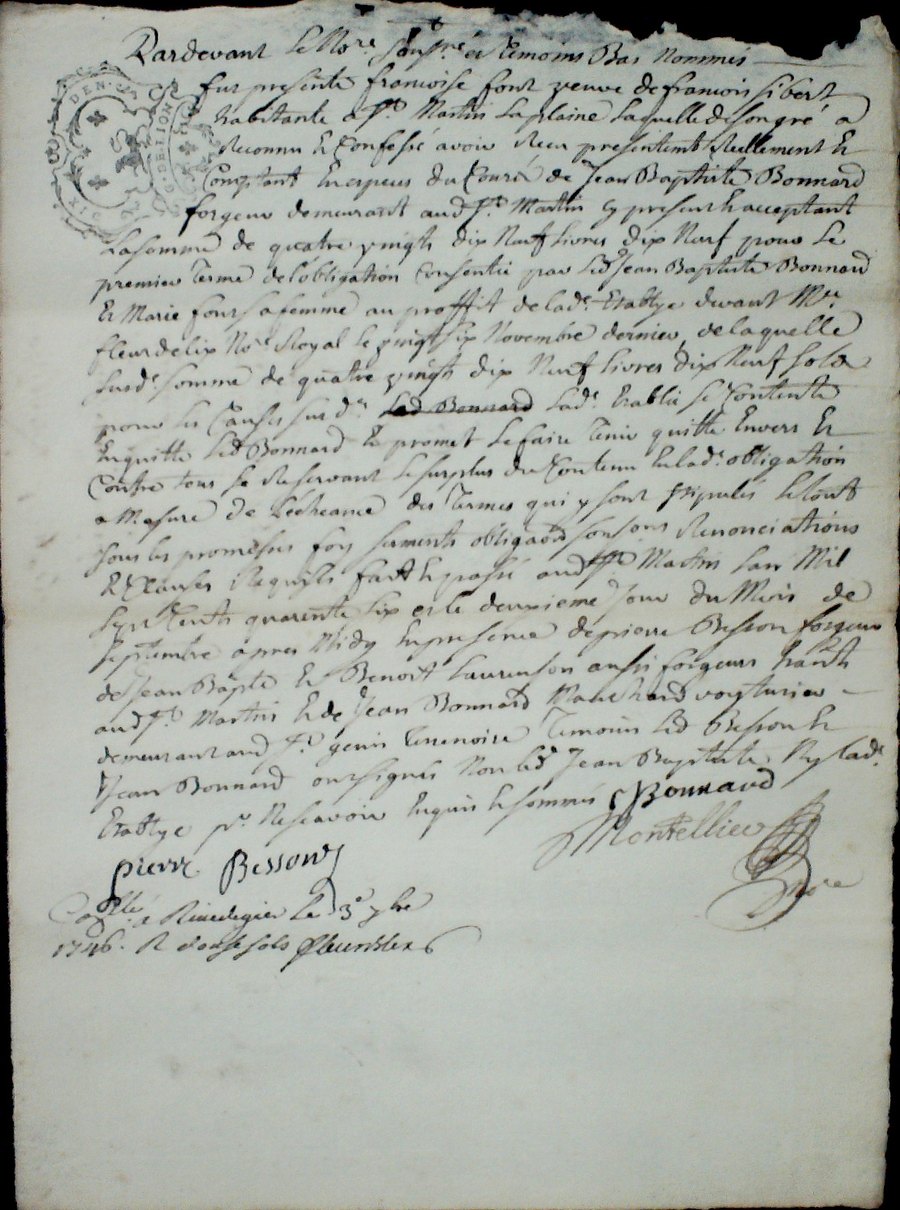 Pardevant Le No.re Sousné. et Temoins Bas Nommés
fut presente francoise font veuve de francois Sibert
habitante a St. Martin La plaine Laquelle de son gré a
Reconnu Et Confessé avoir Receu presentemt. Reellement Et
Comptant En especes du Cours de Jean Baptiste Bonnard
forgeur demeurant aud. St. Martin Cy present Et acceptant
La somme de quatre vingts dix Neuf Livres dix Neuf pour Le
premier Terme de l'obligation Consentie par Led. Jean Baptiste Bonnard
Et Marie font sa femme au proffit de lad.e Etablye devant Me.
fleurdelix No.re Royal Le vingt six Novembre dernier, de laquelle
susd.e somme de quatre vingts dix Neuf Livres dix Neuf sols
pour Les Causes susd.es Led Bonnard Lad.e Etablie se Contente
En quitte Led Bonnard Et promet Le faire Tenir quitte Envers Et
Contre tous se Reservant Le surplus du Contenu En lad.e obligation
a Mesure de L'echeance des Termes qui y sont stipulés Le tout
sous les promesses foy serments obligaons Renonciations
Et Clauses Requises fait Et passé aud St. Martin L'an Mil
Sept Cents quarente Six et le deuxieme Jour du Mois de
Septembre apres Midy En presence de pierre Besson forgeur
de Jean Bapte. Et Benoit Laurenson aussi forgeurs habts
aud St. Martin Et de Jean Bonnard Marchand voyturier
demeurant aud. St. genis Terrenoire Temoins Led Besson Et
Jean Bonnard ont signés Non led. Jean Baptiste Ny lad.e
Etablye pr. Ne scavoir Enquis Et sommés
Bonnard
Montellier
No.re
pierre Besson
Con.llé a Rivedegier Le 3e 7bre
1746. R douse sols fleurdelix
GEN DE LION
DIX DEN